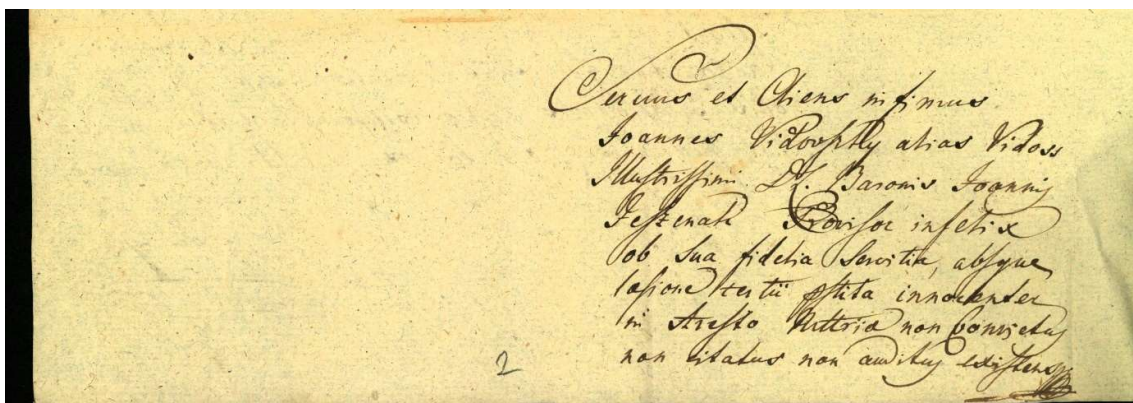 Servus et Cliens infimus
Joannes Vidovszky alias Vidoss
Illustrissimi D. Baronis Joannis
Jeszenak Provisor infelix
ob sua fidelia Servitia, absque
laesione tertii pstita innocenter
in Aresto Nittriae non Convictus
non citatus non auditus existens
2